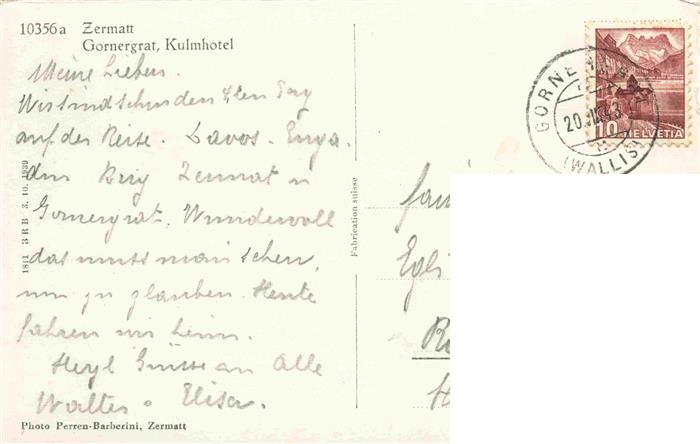 10356a Zermatt
Gornergrat, Kulmhotel
Meine Lieben.
Wir sind schon den 4ten Tag
auf der Reise. Davos - Enga-
din Brig Zermat u
Gornergrat. Wundervoll
das muss man sehen,
um zu glauben. Heute
fahren wir heim.
Herzl Grüsse an Alle
Walter & Elisa.
Photo Perren-Barberini, Zermatt
18|1 3 R B 3. 10. 1939
Fabrication suisse
GORNERGRAT
20.
(WALLIS)
10 HELVETIA
Fam
Egli